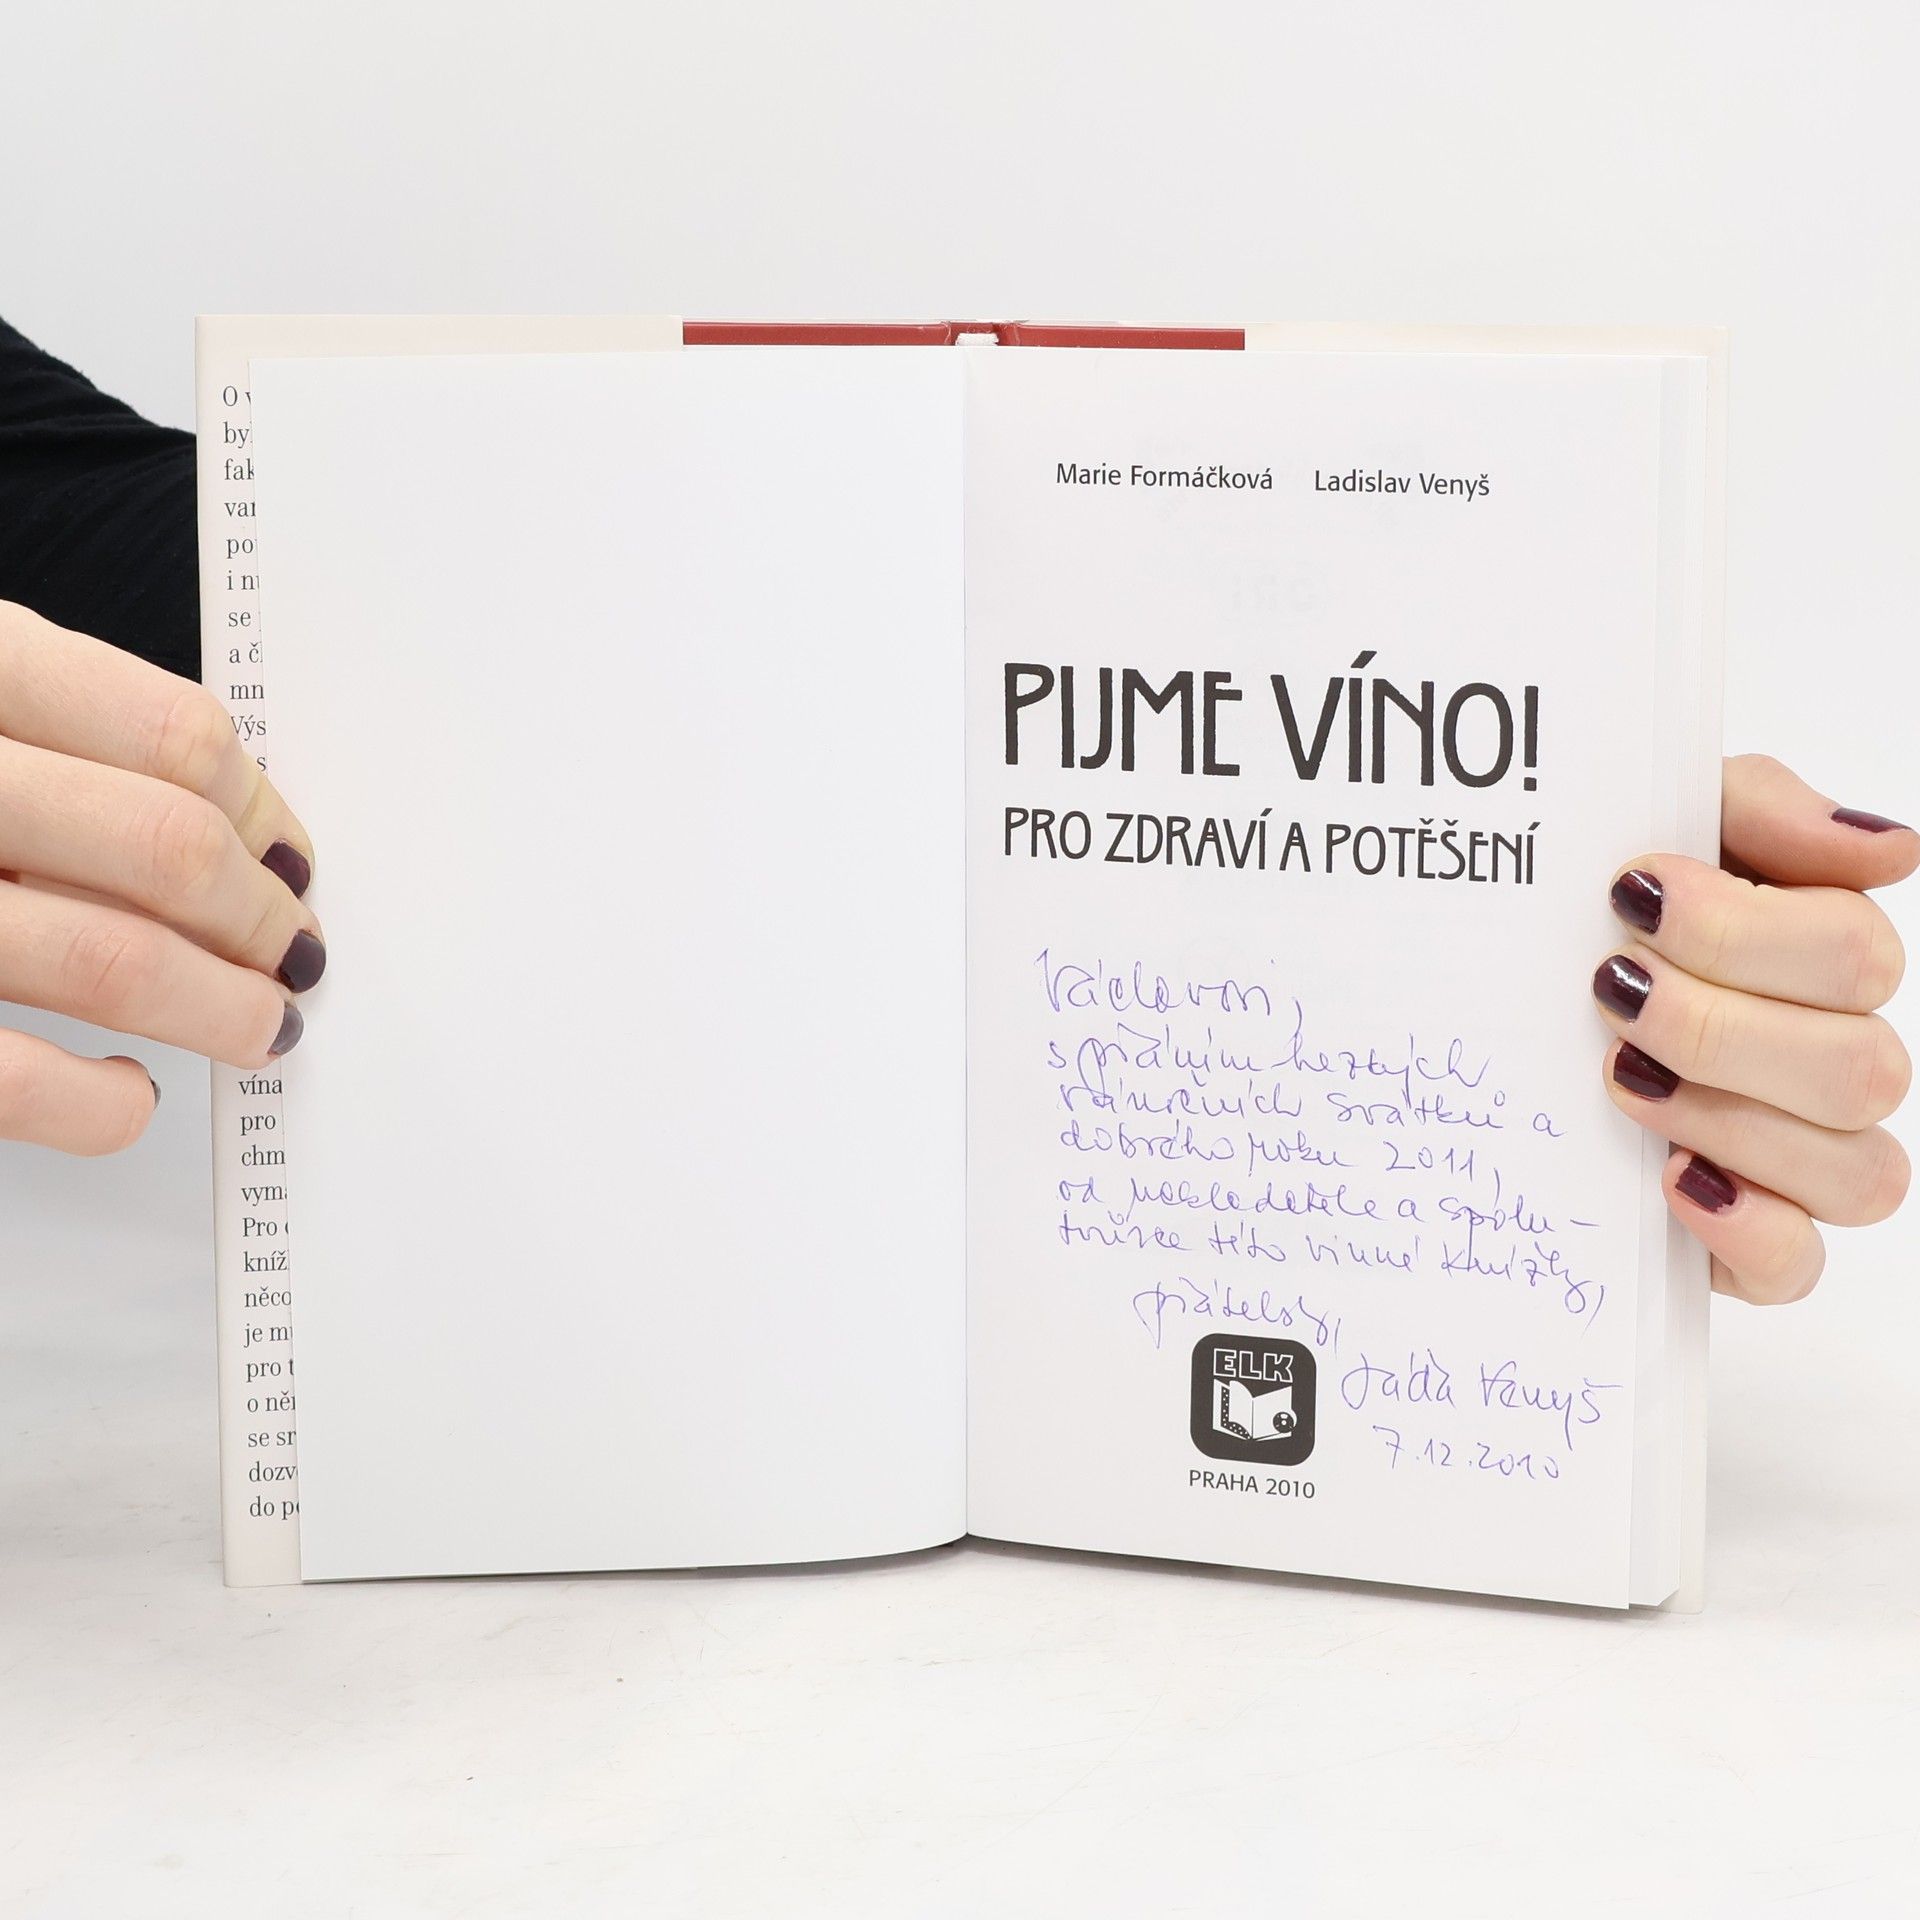 O v
by
fak
var
po
i nu
se
a č
mn
Výs
s
vína
pro
chm
vyma
Pro
kníž
něco
je m
pro t
o ně
se sr
dozv
do p
Marie Formáčková Ladislav Venyš
PIJME VÍNO!
PRO ZDRAVÍ A POTĚŠENÍ
Václavovi,
s přáním hezkých
vánočních svátků a
dobrého roku 2011,
od nakladatele a spolu-
tvůrce této vinné knížky,
přátelsky,
ELK
Láďa Venyš
7.12.2010
PRAHA 2010